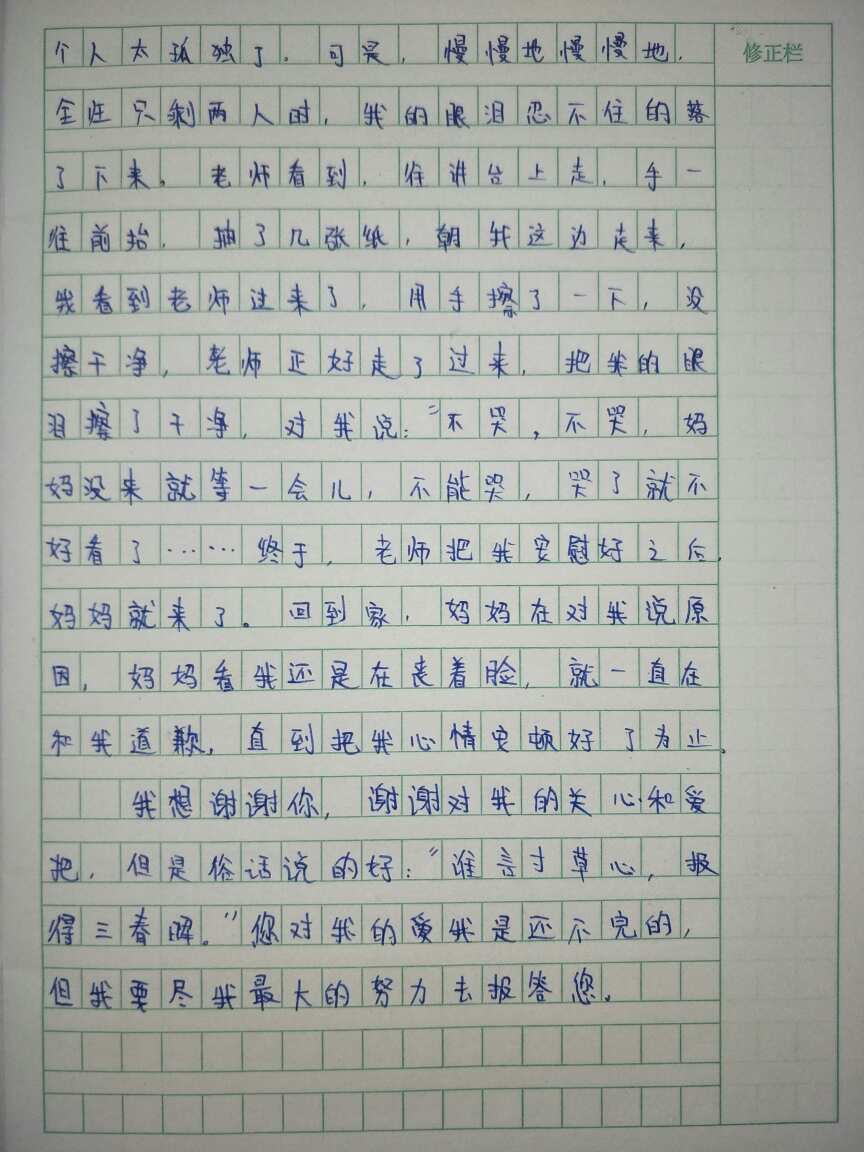 修正栏
个人太孤独了。可是,慢慢地慢慢地,
全班只剩两人时,我的眼泪忍不住的落
了下来。老师看到,往讲台上走,手一
往前抬,抽了几张纸,朝我这边走来,
我看到老师过来了,用手擦了一下,没
擦干净,老师正好走了过来,把我的眼
泪擦了干净,对我说:“不哭,不哭,妈
妈没来就等一会儿,不能哭,哭了就不
好看了……终于,老师把我安慰好之后,
妈妈就来了。回到家,妈妈在对我说原
因,妈妈看我还是在丧着脸,就一直在
和我道歉,直到把我心情安顿好了为止。
我想谢谢你,谢谢对我的关心和爱
把,但是俗话说的好:“谁言寸草心,报
得三春晖。”您对我的爱我是还不完的,
但我要尽我最大的努力去报答您。